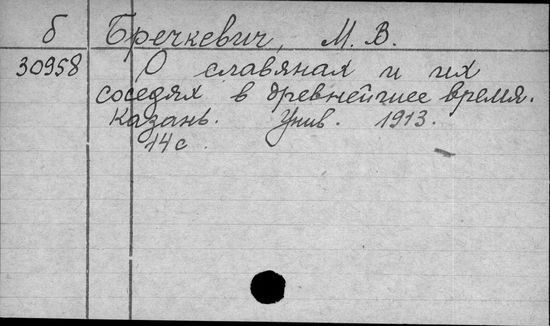 б Бречкевич, М. В.
30958 О славянах и их
соседях в древнейшее время.
Казань. Унив. 1913.
14 с.